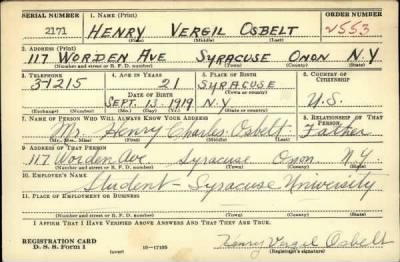 SERIAL NUMBER 1. NAME (Print) ORDER NUMBER
2171 HENRY VERGIL OSBELT 2553
(First) (Middle) (Last)
2. ADDRESS (Print)
117 WORDEN AVE SYRACUSE ONON N.Y
(Number and street or R. F. D. number) (Town) (County) (State)
3. TELEPHONE 4. AGE IN YEARS 5. PLACE OF BIRTH 6. COUNTRY OF CITIZENSHIP
3-1215 21 SYRACUSE
DATE OF BIRTH (Town or county)
SEPT. 13. 1919 N.Y U.S.
(Exchange) (Number) (Mo.) (Day) (Yr.) (State or country)
7. NAME OF PERSON WHO WILL ALWAYS KNOW YOUR ADDRESS 8. RELATIONSHIP OF THAT PERSON
Mr. Henry Charles Osbelt Father
(Mr., Mrs., Miss) (First) (Middle) (Last)
9. ADDRESS OF THAT PERSON
117 Worden Ave Syracuse Onon N.Y.
(Number and street or R. F. D. number) (Town) (County) (State)
10. EMPLOYER'S NAME
Student - Syracuse University
11. PLACE OF EMPLOYMENT OR BUSINESS
(Number and street or R. F. D. number) (Town) (County) (State)
I AFFIRM THAT I HAVE VERIFIED ABOVE ANSWERS AND THAT THEY ARE TRUE.
REGISTRATION CARD
D. S. S. Form 1 (over) 16-17105 Henry Vergil Osbelt
(Registrant's signature)